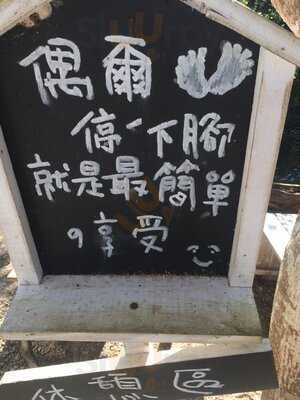 偶爾
停下腳
就是最簡單
的享受
休憩區